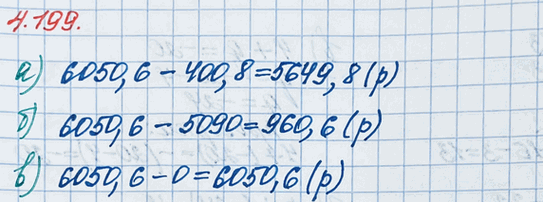 4.199.
а) 6050,6 - 400,8 = 5649,8 (р)
б) 6050,6 - 5090 = 960,6 (р)
в) 6050,6 - 0 = 6050,6 (р)